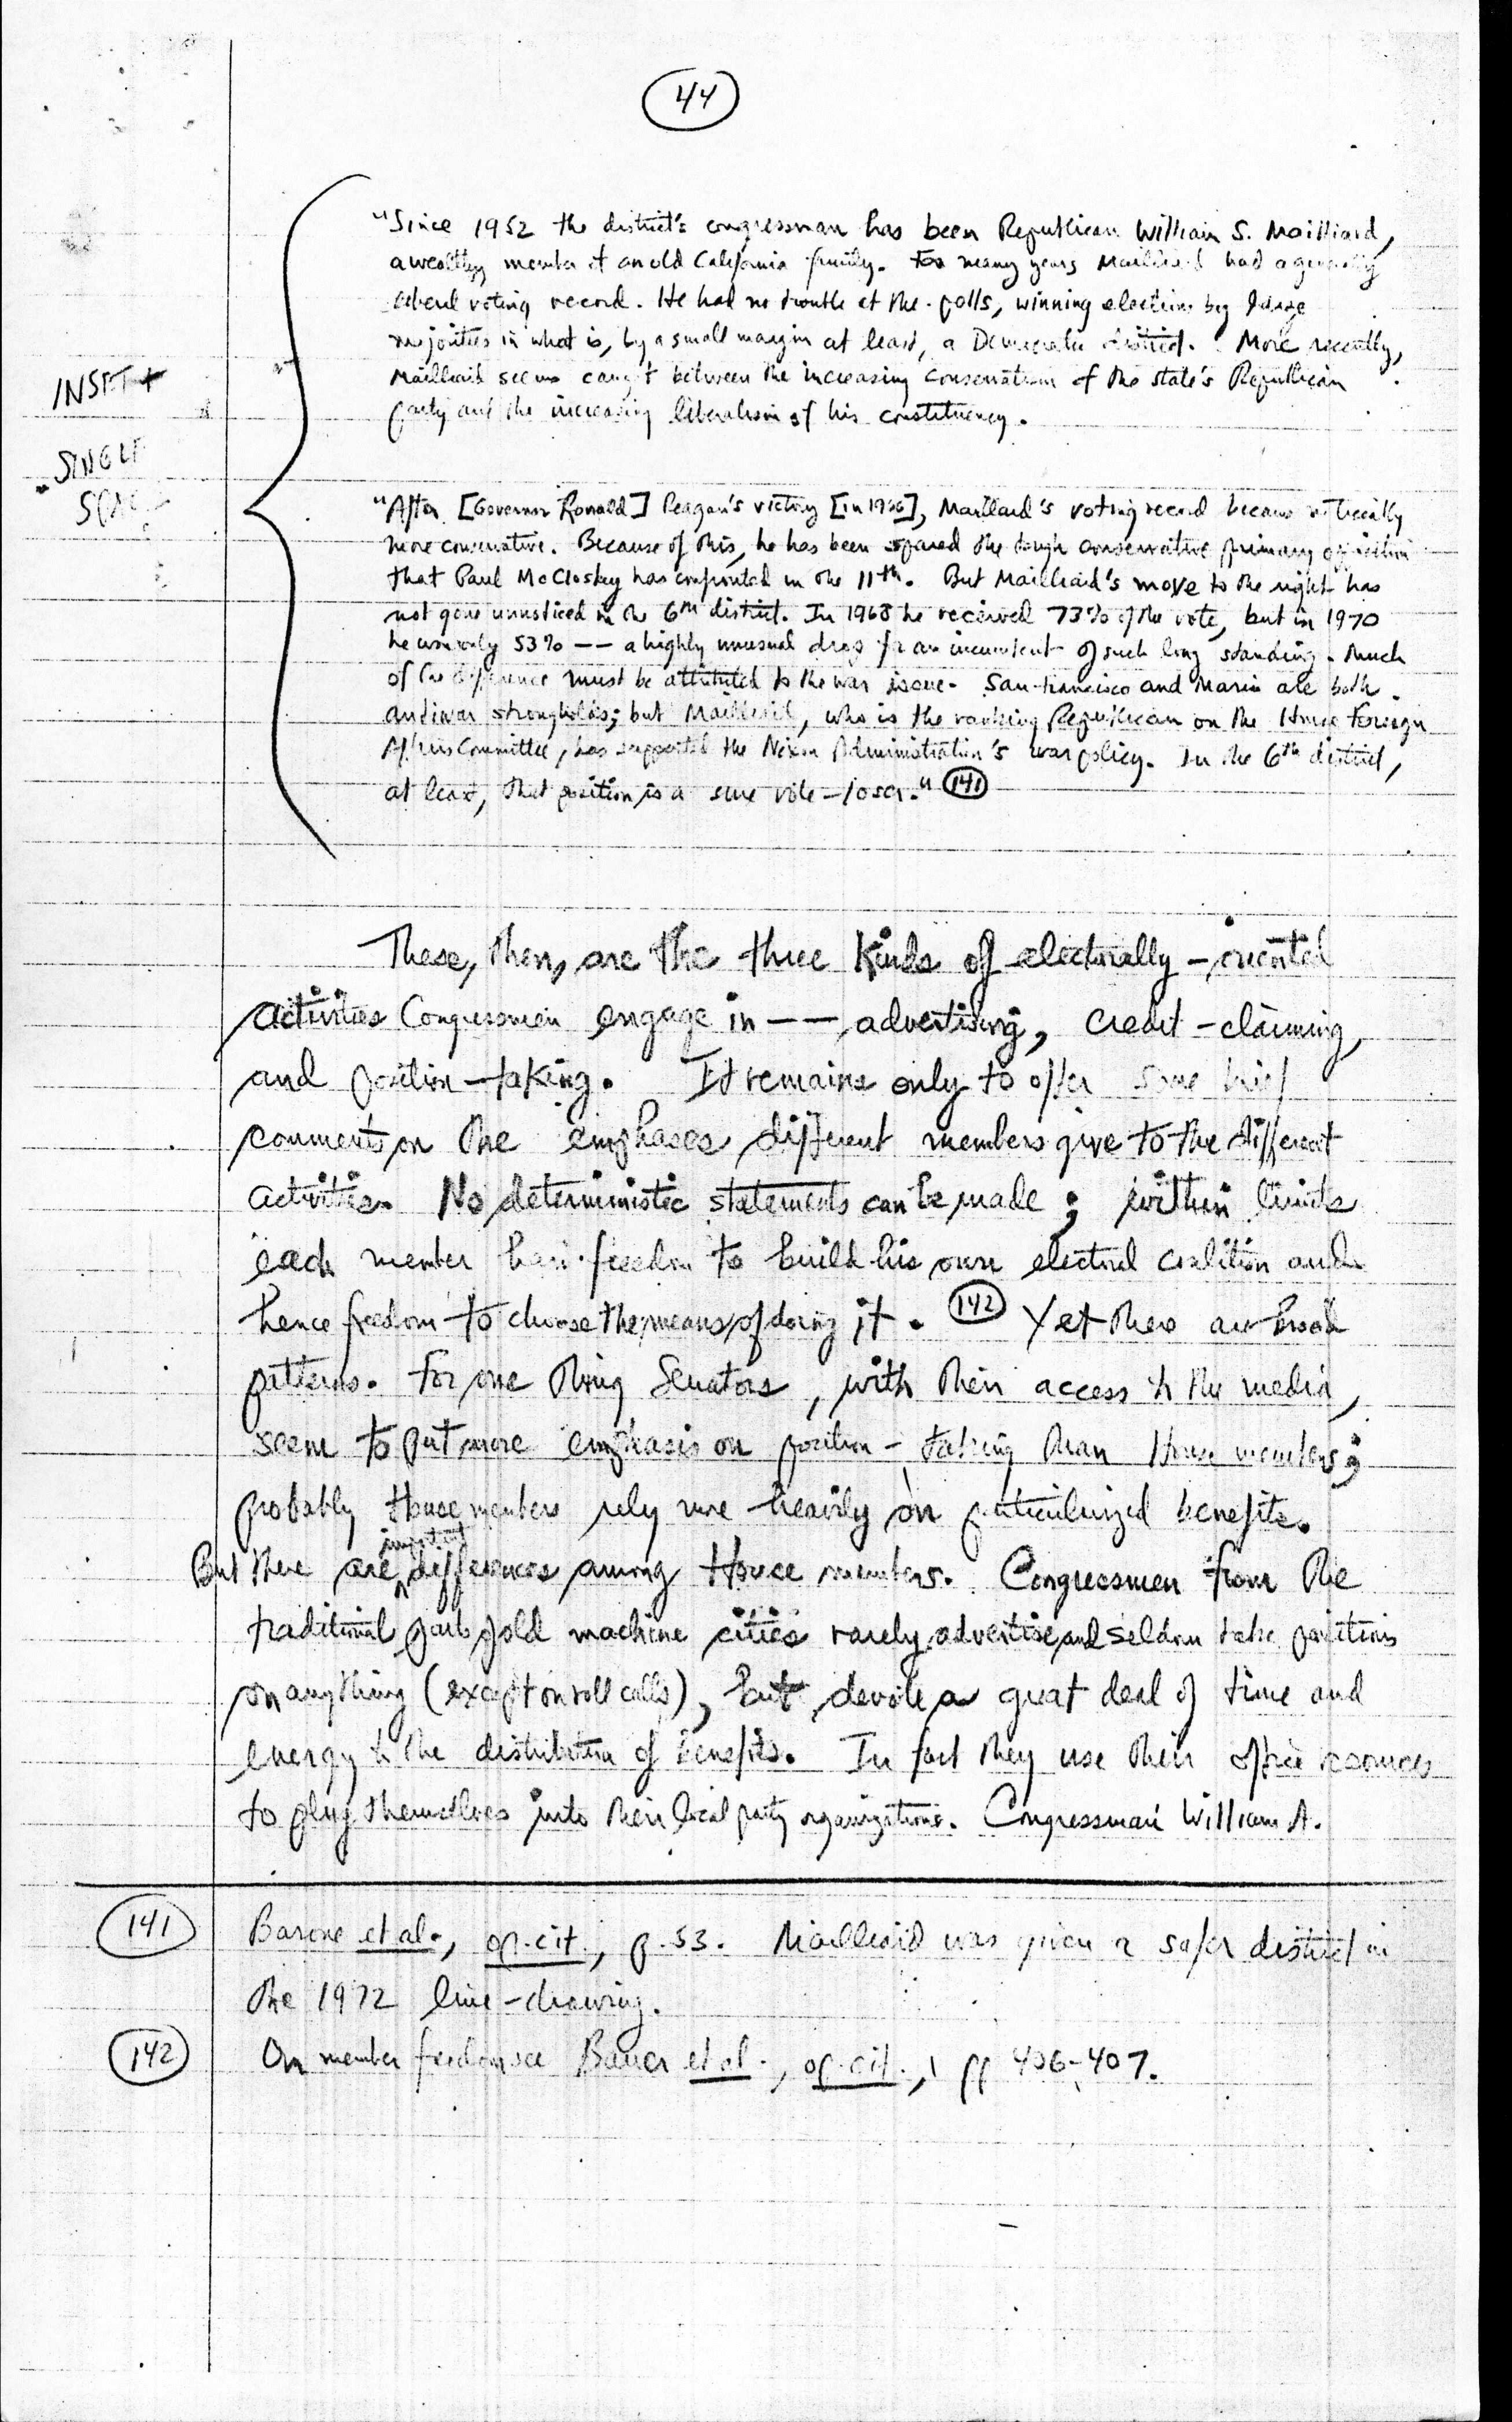 44
INSET +
SINGLE
"Since 1952 the district's congressman has been Republican William S. Mailliard,
a wealthy member of an old California family. For many years Mailliard had a generally
liberal voting record. He had no trouble at the polls, winning elections by large
majorities in what is, by a small margin at least, a Democratic district. More recently,
Mailliard seems caught between the increasing conservatism of the state's Republican
party and the increasing liberalism of his constituency.
"After [Governor Ronald] Reagan's victory [in 1966], Mailliard's voting record became noticeably
more conservative. Because of this, he has been spared the tough conservative primary opposition
that Paul McCloskey has confronted in the 11th. But Mailliard's move to the right has
not gone unnoticed in the 6th district. In 1968 he received 73% of the vote, but in 1970
he won only 53% -- a highly unusual drop for an incumbent of such long standing. Much
of the difference must be attributed to the war issue. San Francisco and Marin are both
antiwar strongholds; but Mailliard, who is the ranking Republican on the House Foreign
Affairs Committee, has supported the Nixon Administration's war policy. In the 6th district,
at least, that position is a sure vote-loser." 141
These, then, are the three kinds of electorally-oriented
activities Congressmen engage in -- advertising, credit-claiming,
and position-taking. It remains only to offer some brief
comments on the emphases different members give to the different
activities. No deterministic statements can be made; within limits
each member has freedom to build his own electoral coalition and
hence freedom to choose the means of doing it. 142 Yet there are broad
patterns. For one thing Senators, with their access to the media,
seem to put more emphasis on position-taking than House members;
probably House members rely more heavily on particularized benefits.
But there are important differences among House members. Congressmen from the
traditional parts of old machine cities rarely advertise and seldom take positions
on anything (except on roll calls), but devote a great deal of time and
energy to the distribution of benefits. In fact they use their office resources
to plug themselves into their local party organizations. Congressman William A.
141 Barone et al., op. cit., p. 53. Mailliard was given a safer district in
the 1972 line-drawing.
142 On member freedom see Bauer et al., op. cit., pp 406-407.